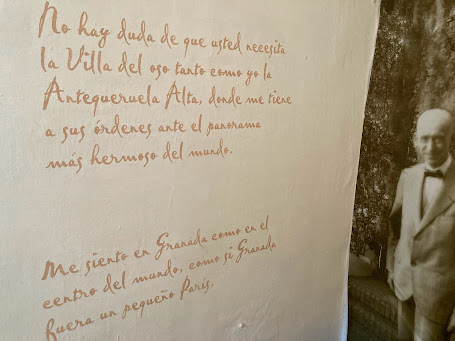 No hay duda de que usted necesita
la Villa del oso tanto como yo la
Antequeruela Alta, donde me tiene
a sus órdenes ante el panorama
más hermoso del mundo.
Me siento en Granada como en el
centro del mundo, como si Granada
fuera un pequeño París.